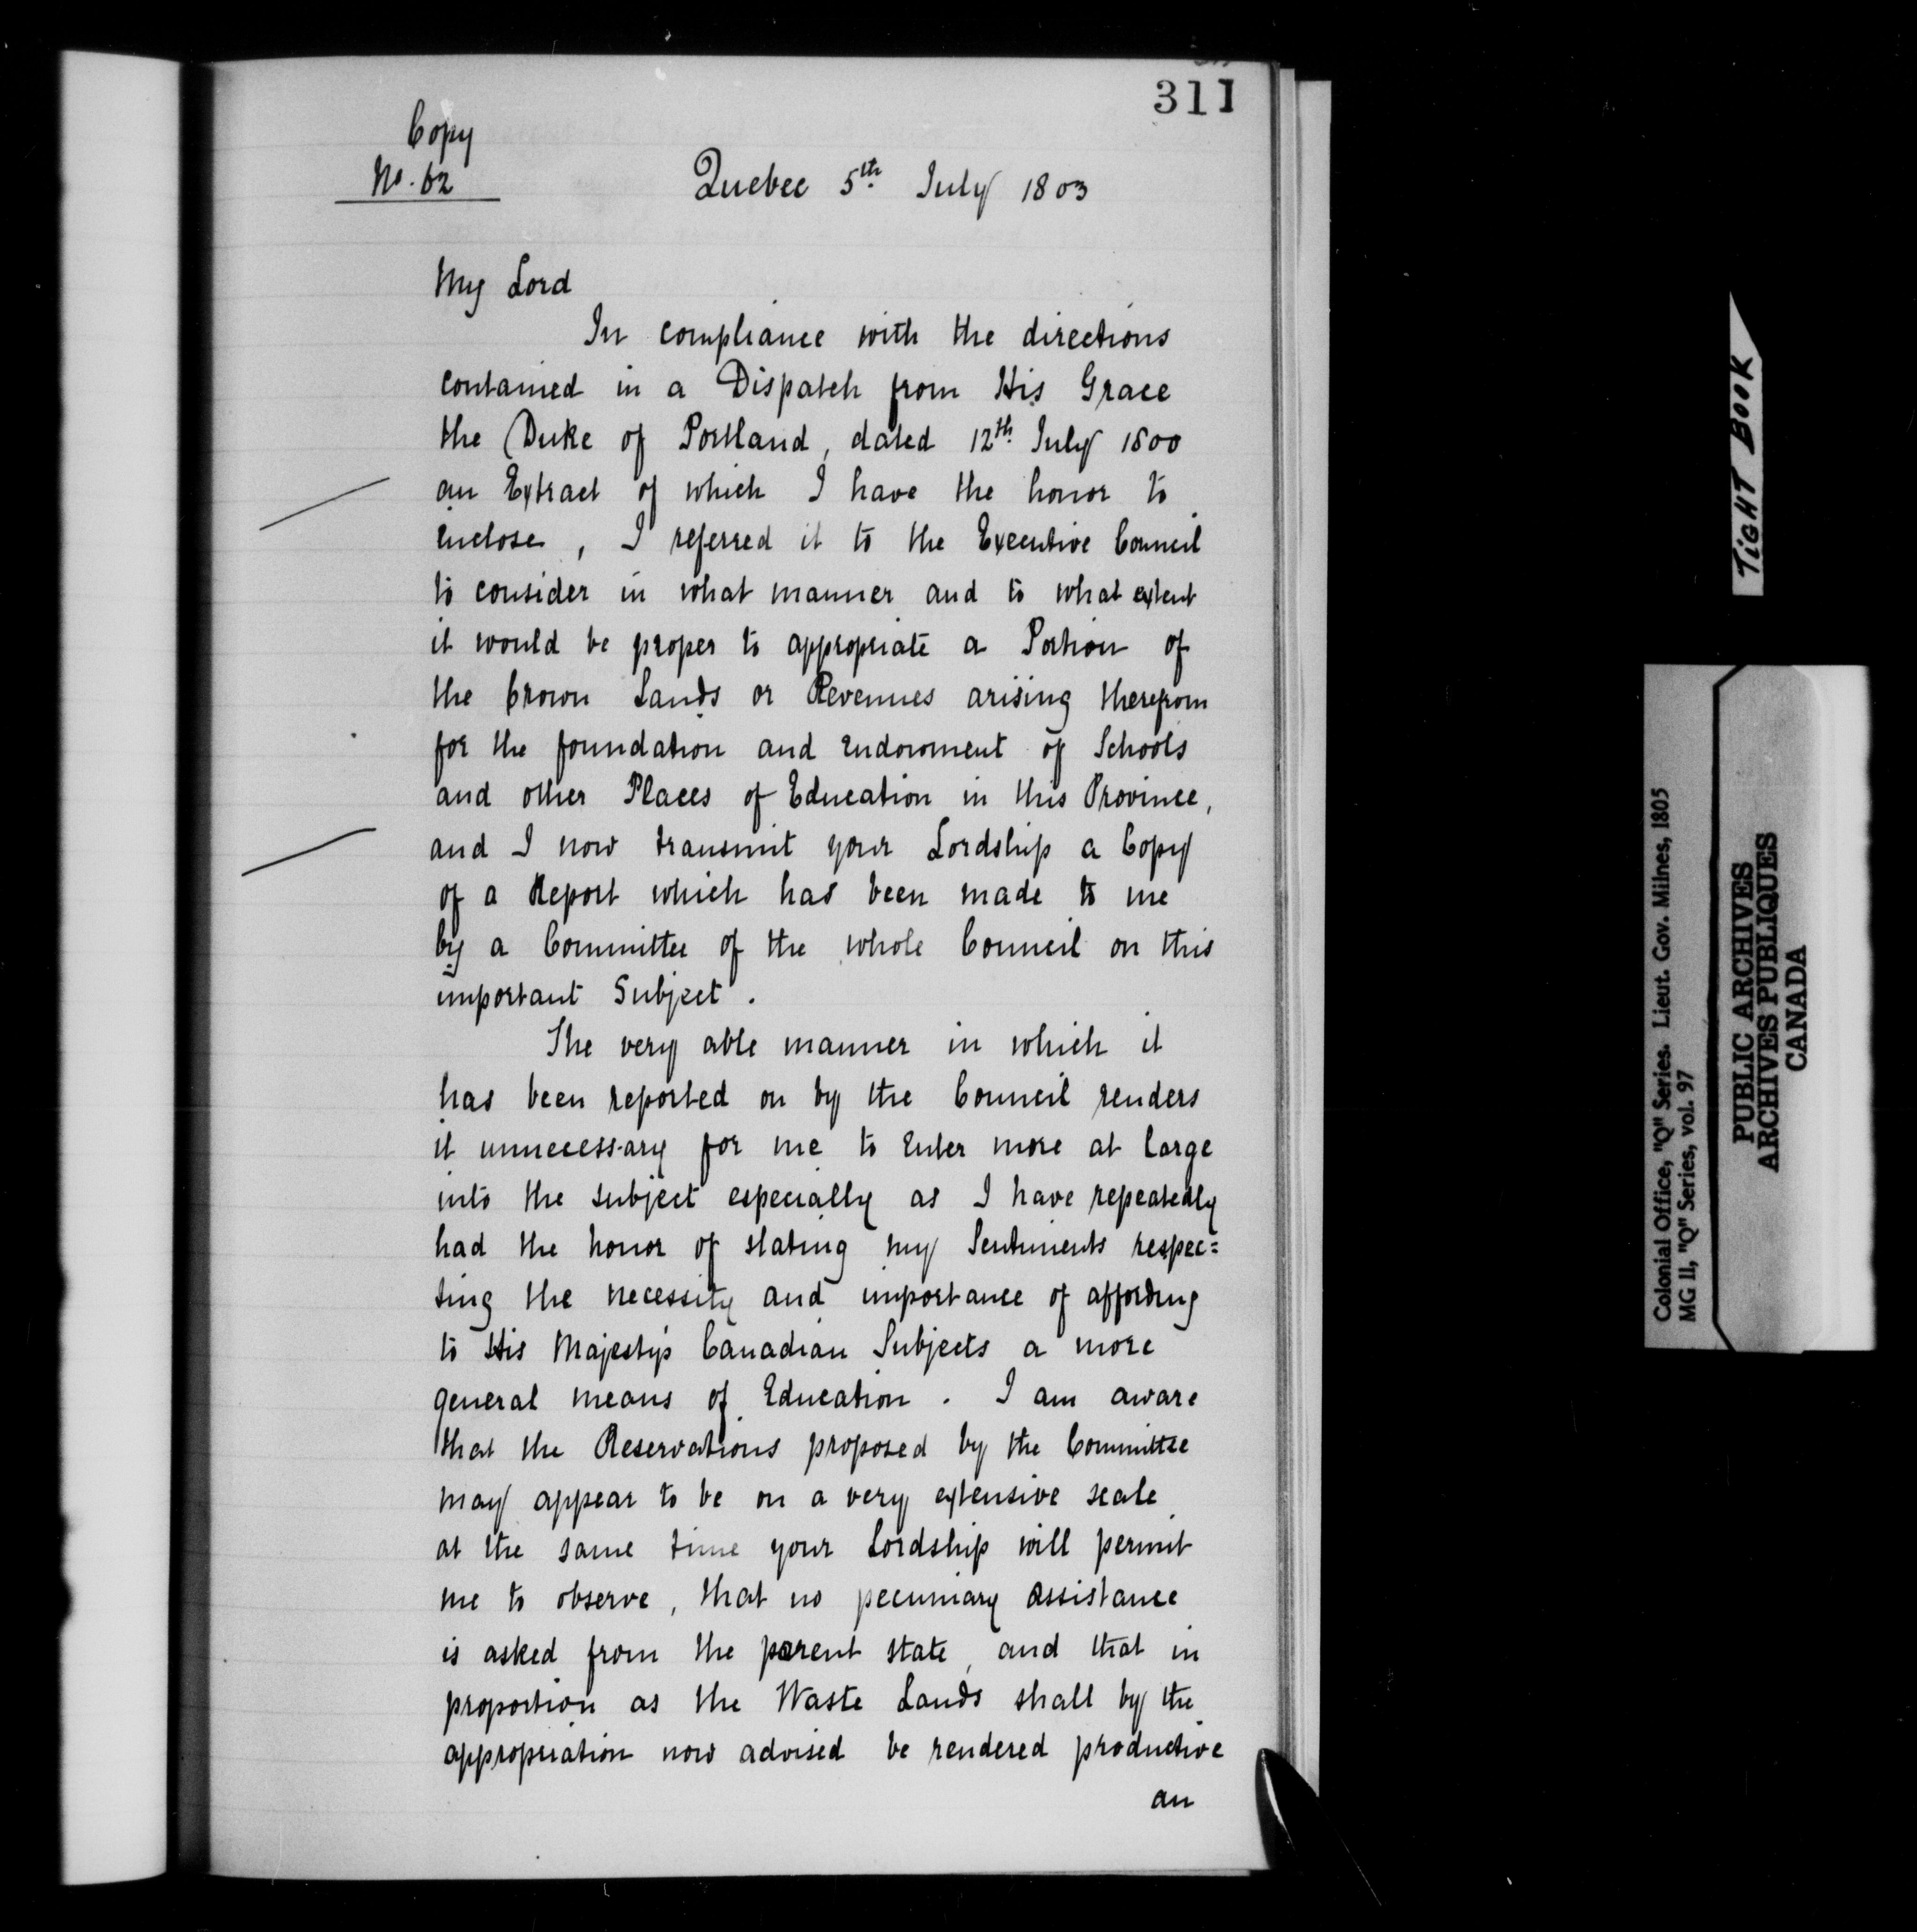 311
Copy
No. 62
Quebec 5th. July 1803
My Lord
In compliance with the directions
contained in a Dispatch from His Grace
the Duke of Portland, dated 12th. July 1800
an Extract of which I have the honor to
inclose, I referred it to the Executive Council
to consider in what manner and to what extent
it would be proper to appropriate a Portion of
the Crown Lands or Revenues arising therefrom
for the foundation and Endowment of Schools
and other Places of Education in this Province,
and I now transmit your Lordship a Copy
of a Report which has been made to me
by a Committee of the whole Council on this
important Subject.
The very able manner in which it
has been reported on by the Council renders
it unnecessary for me to Enter more at large
into the subject especially as I have repeatedly
had the honor of stating my Sentiments respec=
ting the necessity and importance of affording
to His Majesty's Canadian Subjects a more
general means of Education. I am aware
that the Reservations proposed by the Committee
may appear to be on a very extensive scale
at the same time your Lordship will permit
me to observe, that no pecuniary assistance
is asked from the parent state, and that in
proportion as the Waste Lands shall by the
appropriation now advised be rendered productive
an
TIGHT BOOK
Colonial Office, "Q" Series. Lieut. Gov. Milnes, 1805
MG 11, "Q" Series, vol. 97
PUBLIC ARCHIVES
ARCHIVES PUBLIQUES
CANADA